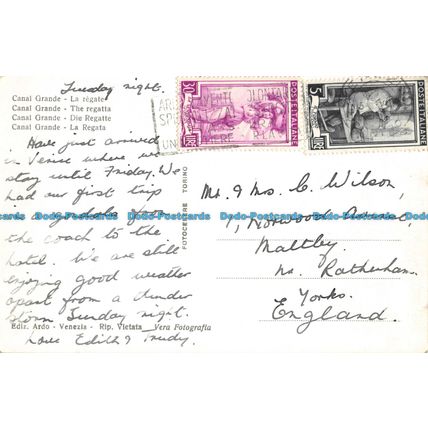 Tuesday night.
Canal Grande - La régate
Canal Grande - The regatta
Canal Grande - Die Regatte
Canal Grande - La Regata
Have just arrived
in Venice where we
stay until Friday. We
had our first trip
in a gondola from
the coach to the
hotel. We are still
enjoying good weather
apart from a thunder
storm Sunday night.
Love Edith & Trudy.
Ediz. Ardo - Venezia - Rip. Vietata Vera Fotografia
FOTOCELERE TORINO
30
LIRE
POSTE ITALIANE
5
LIRE
POSTE ITALIANE
Mr. & Mrs. C. Wilson,
1, Norwood Avenue,
Maltley.
Nr. Rotherham.
Yorks.
England.
Dodo-Postcards Dodo-Postcards Dodo-Postcards Dodo-Postcards Dodo-Postcards